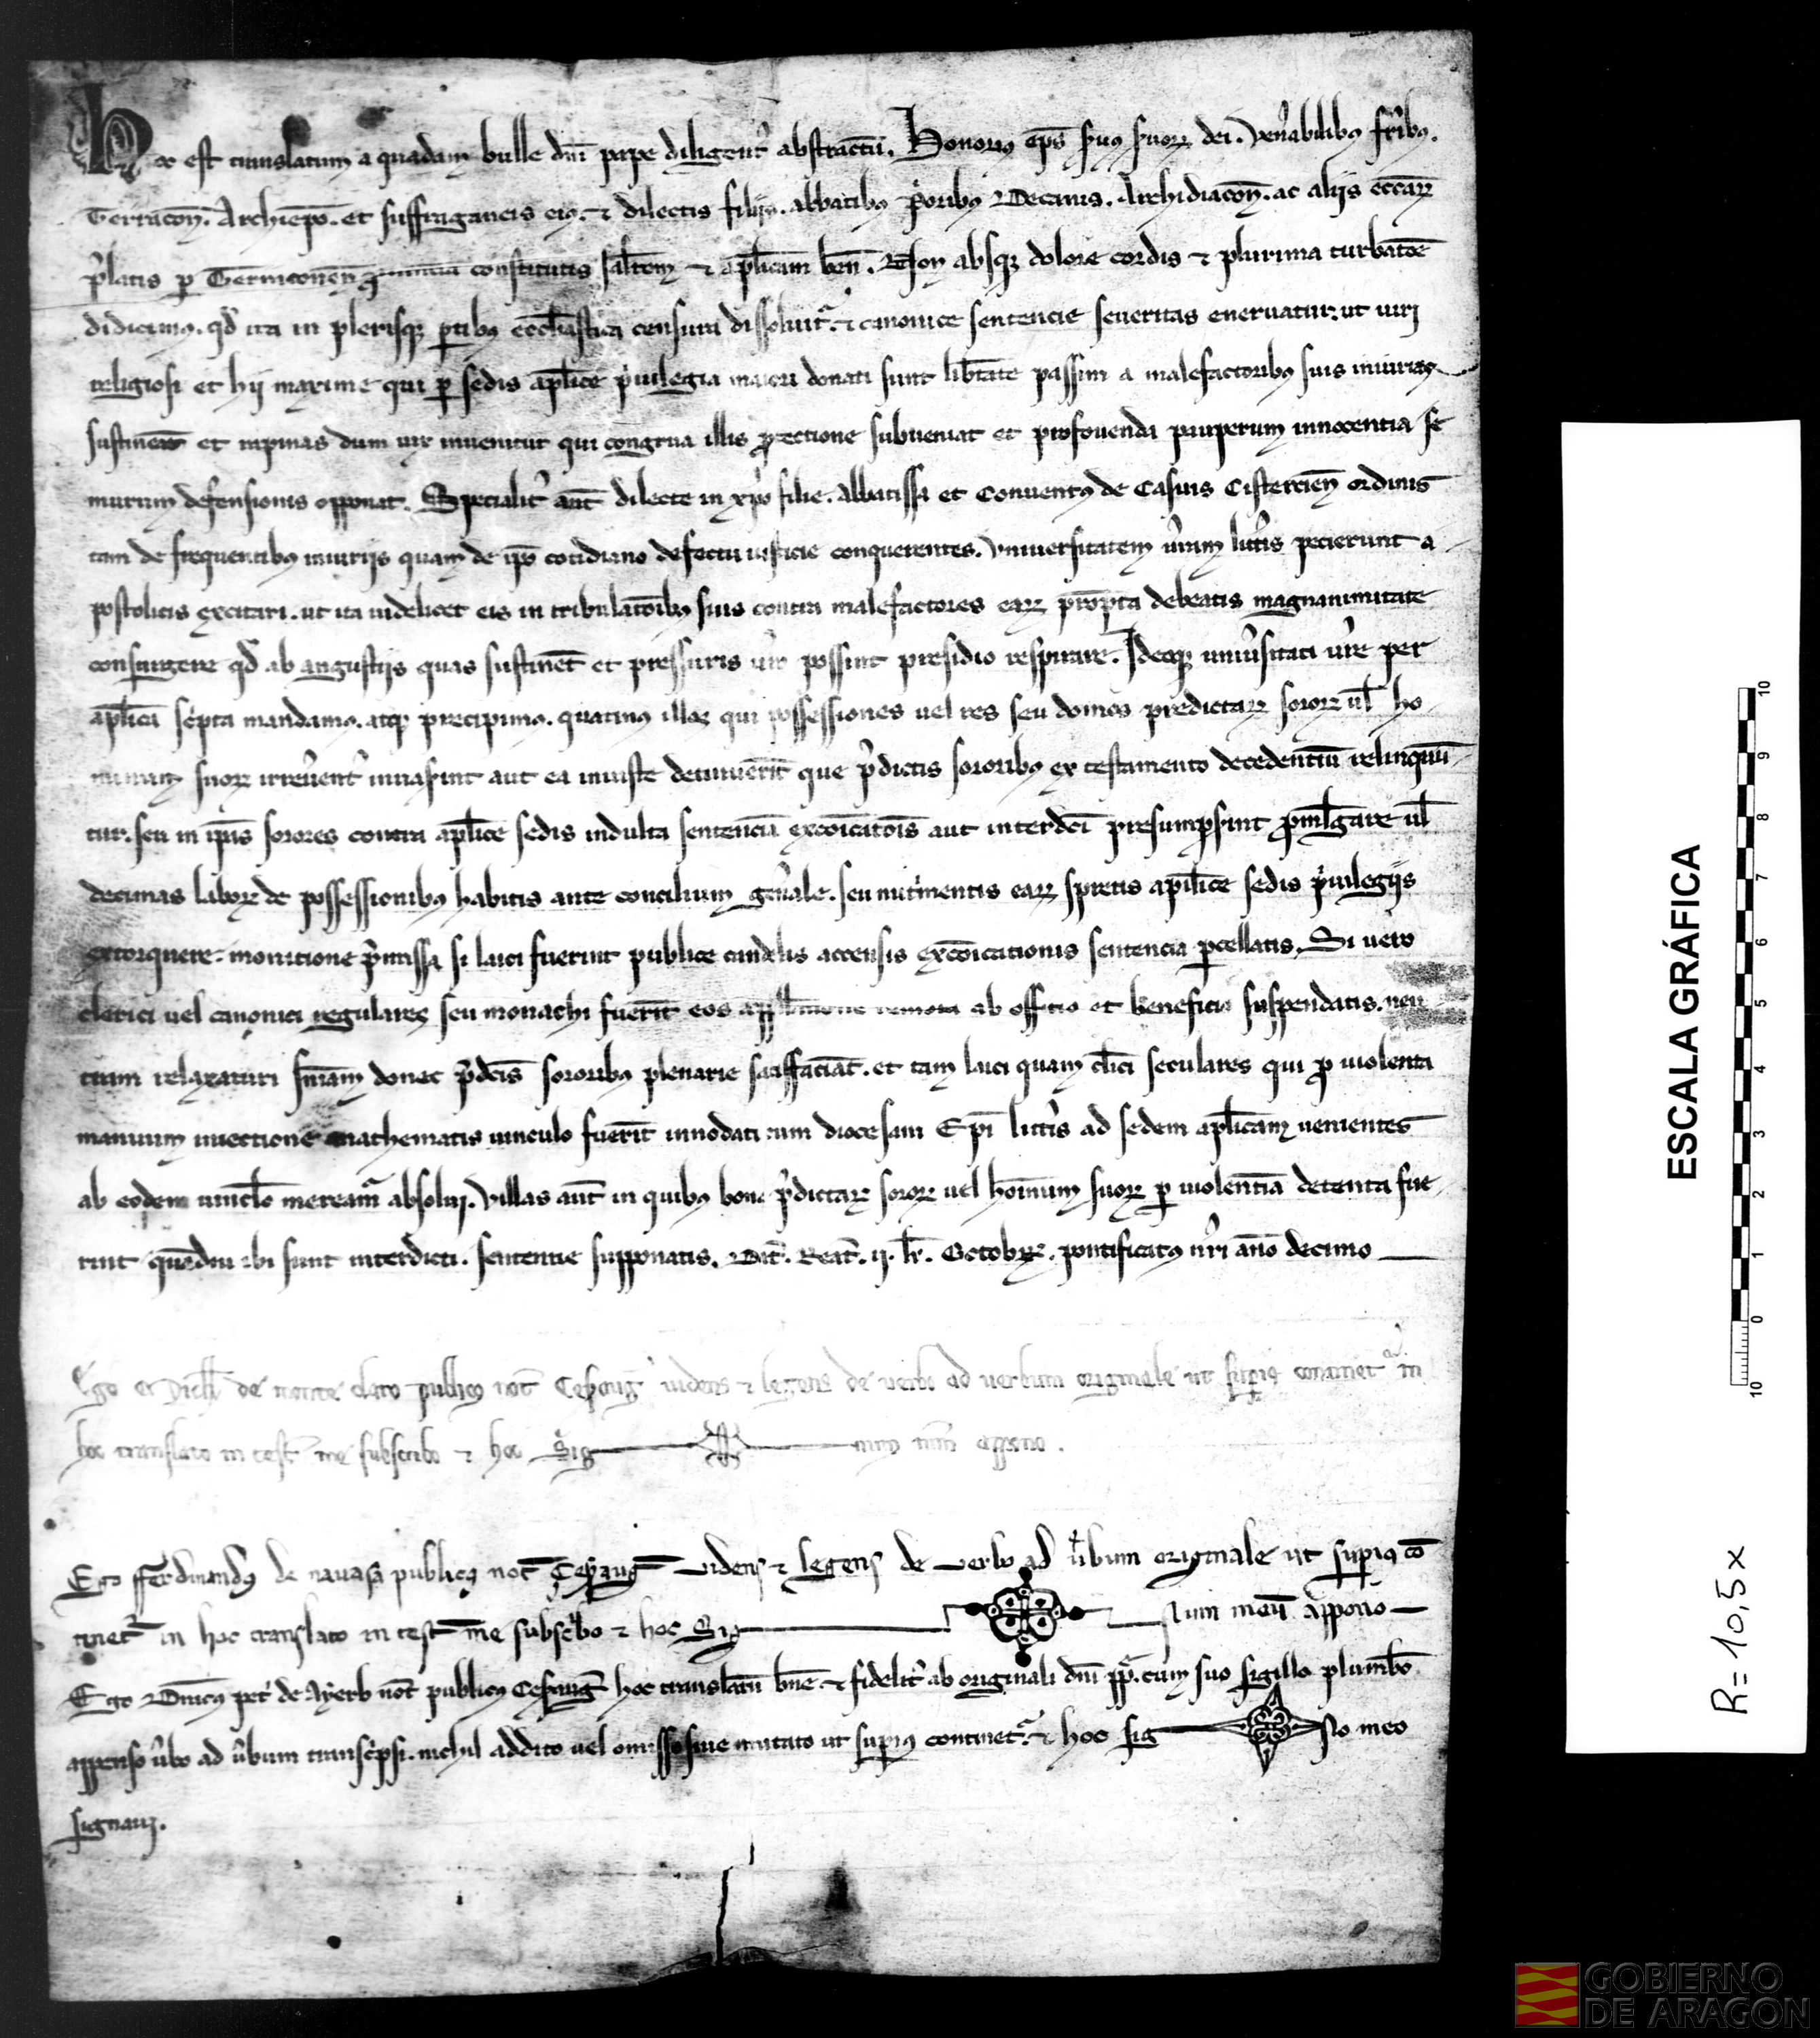 Hoc est translatum a quadam bulle dñi pape diligent̾ abstractũ. Honorius ep̃s s̾uus s̾uoꝝ dei. Ven̾abilibus fr̃ibus.
Terracoñ. Archiep̃o. et suffraganeis eius. ⁊ dilectis filijs. abbatibus p̾oribus Decanis. Archidiacoñ. ac aliis eccl̃aꝝ
p̾latis ꝑ Terraconeñ constitutis salt̃em ⁊ ap̃licam beñ. Non absqꝫ dolore cordis ⁊ plurima turbatõe
didicimus. qd̾ ita in plerisqꝫ ꝑtibus eccl̃iastica censura dissoluit᷑. ⁊ canonice sentencie seueritas eneruatur. ut uiri
religiosi et hij maxime qui ꝑ sedis ap̃lice p̾uilegia maiori donati sunt lib̾tate passim a malefactoribus suis iniurias
sustineãt et rapinas dum uix inuenitur qui congrua illis ꝓtectione subueniat et pro fouenda pauperum innocentia se
murum defensionis opponat. Specialit̾ aut̃ dilecte in xp̃o filie. Abbatissa et Conuentus de Casuis Cistercieñ ordinis
tam de frequentibus iniurijs quam de ip̃o cotidiano defectu iusticie conquerentes. Vniuersitatem ur̃am litt̾is pecierunt a
postolicis excitari. ut ita uidelicet eis in tribulatõibus suis contra malefactores eaꝝ prõpta debeatis magnanimitate
consurgere qd̾ ab angustijs quas sustinẽt et pressuris ur̃o possint presidio respirare. Ideoqꝫ uniu̾sitati ur̃e per
ap̃lica sc̾pta mandamus. atqꝫ precipimus. quatinus illos qui possessiones uel res seu domos predictaꝝ soroꝝ ul̃ ho
minum suoꝝ irreu̾ent̾ inuaserint aut ea iniuste detinuerĩt que p̾dictis sororibus ex testamento decedentiũ relinquũ
tur. seu in ip̃as sorores contra ap̃lice sedis indulta sentenciã excõicatõis aut interdc̃i presumpserint ꝓmulgare ul̃
decimas laboꝝ de possessionibus habitis ante concilium gen̾ale. seu nutrimentis eaꝝ spretis ap̃lice sedis p̾uilegijs
extorquere. monitione p̾missa si laici fuerint publice candelis accensis excõicationis sentencia ꝑcellatis. Si uero
clerici uel canonici regulares seu monachi fuerĩt eos appellatione remota ab officio et beneficio suspendatis. neu
tram relaxaturi sñiam donec p̾dc̃is sororibus plenarie satisfaciãt. et tam laici quam cl̃ici seculares qui ꝓ uiolenta
manuum iniectione anathematis uinculo fuerĩt innodati cum diocesani Ep̃i litt̾is ad sedem ap̃licam uenientes
ab eodem uinclo mereant᷑ absolui. Villas aut̃ in quibus bona p̾dictaꝝ soroꝝ uel hom̃inum suoꝝ ꝑ uiolentiã detenta fue
rint quãdiu ibi sunt interdicti. sententie supponatis. Dat̃. Reat̃. ij. kl̃. Octobꝝ. pontificatus nr̃i año decimo
Ego de monte claro publicus not̃ Cesaraug̃ uidens ⁊ legens de uerbo ad uerbum originale ut sup̾ius continet᷑ in
hoc translato in test̃ me subscribo ⁊ hoc Sig num meũ appono.
Ego fferdinandus de nauasa publicus not̃ Cesaraug̃ uidens ⁊ legens de uerbo ad u̾bum originale ut sup̾ius cõ
tinet᷑ in hoc translato in test̃ me subsc̾bo ⁊ hoc Sig num meũ appono
Ego Dñicus pet̾ de Ayerb not̃ publicus Cesaraug̃ hoc translatũ bñe ⁊ fidelit̾ ab originali dñi pp̃. cum suo sigillo plumbeo
appenso u̾bo ad u̾bum transc̾psi. nichil addito uel omisso siue mutato ut sup̾ius continet᷑. ⁊ hoc sig no meo
signaui.
ESCALA GRÁFICA
10 9 8 7 6 5 4 3 2 1 0 10
R=10,5x
GOBIERNO
DE ARAGON